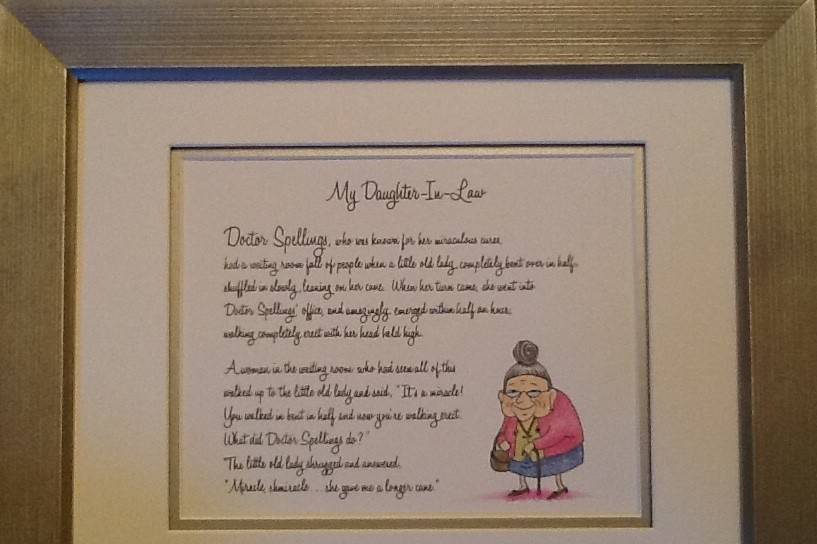 My Daughter-In-Law
Doctor Spellings, who was known for her miraculous cures,
had a waiting room full of people when a little old lady, completely bent over in half,
shuffled in slowly, leaning on her cane. When her turn came, she went into
Doctor Spellings' office, and amazingly, emerged within half an hour,
walking completely erect with her head held high.
A woman in the waiting room who had seen all of this
walked up to the little old lady and said, "It's a miracle!
You walked in bent in half and now you're walking erect.
What did Doctor Spellings do?"
The little old lady shrugged and answered,
"Miracle, shmiracle . . . she gave me a longer cane."